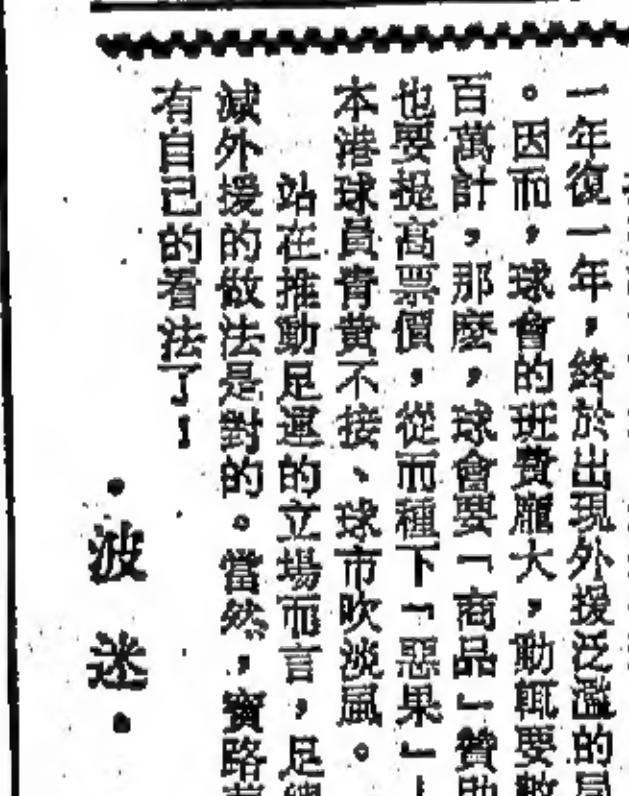 一年復一年，終於出現外援泛濫的局
。因而，球會的班費龐大，動輒要數
百萬計，那麽，球會要「商品」贊助
也要提高票價，從而種下「惡果」
本港球員青黃不接、球市吹淡風。
站在推動足運的立場而言，足總
減外援的做法是對的。當然，寶路
有自己的看法了！
·波迷·